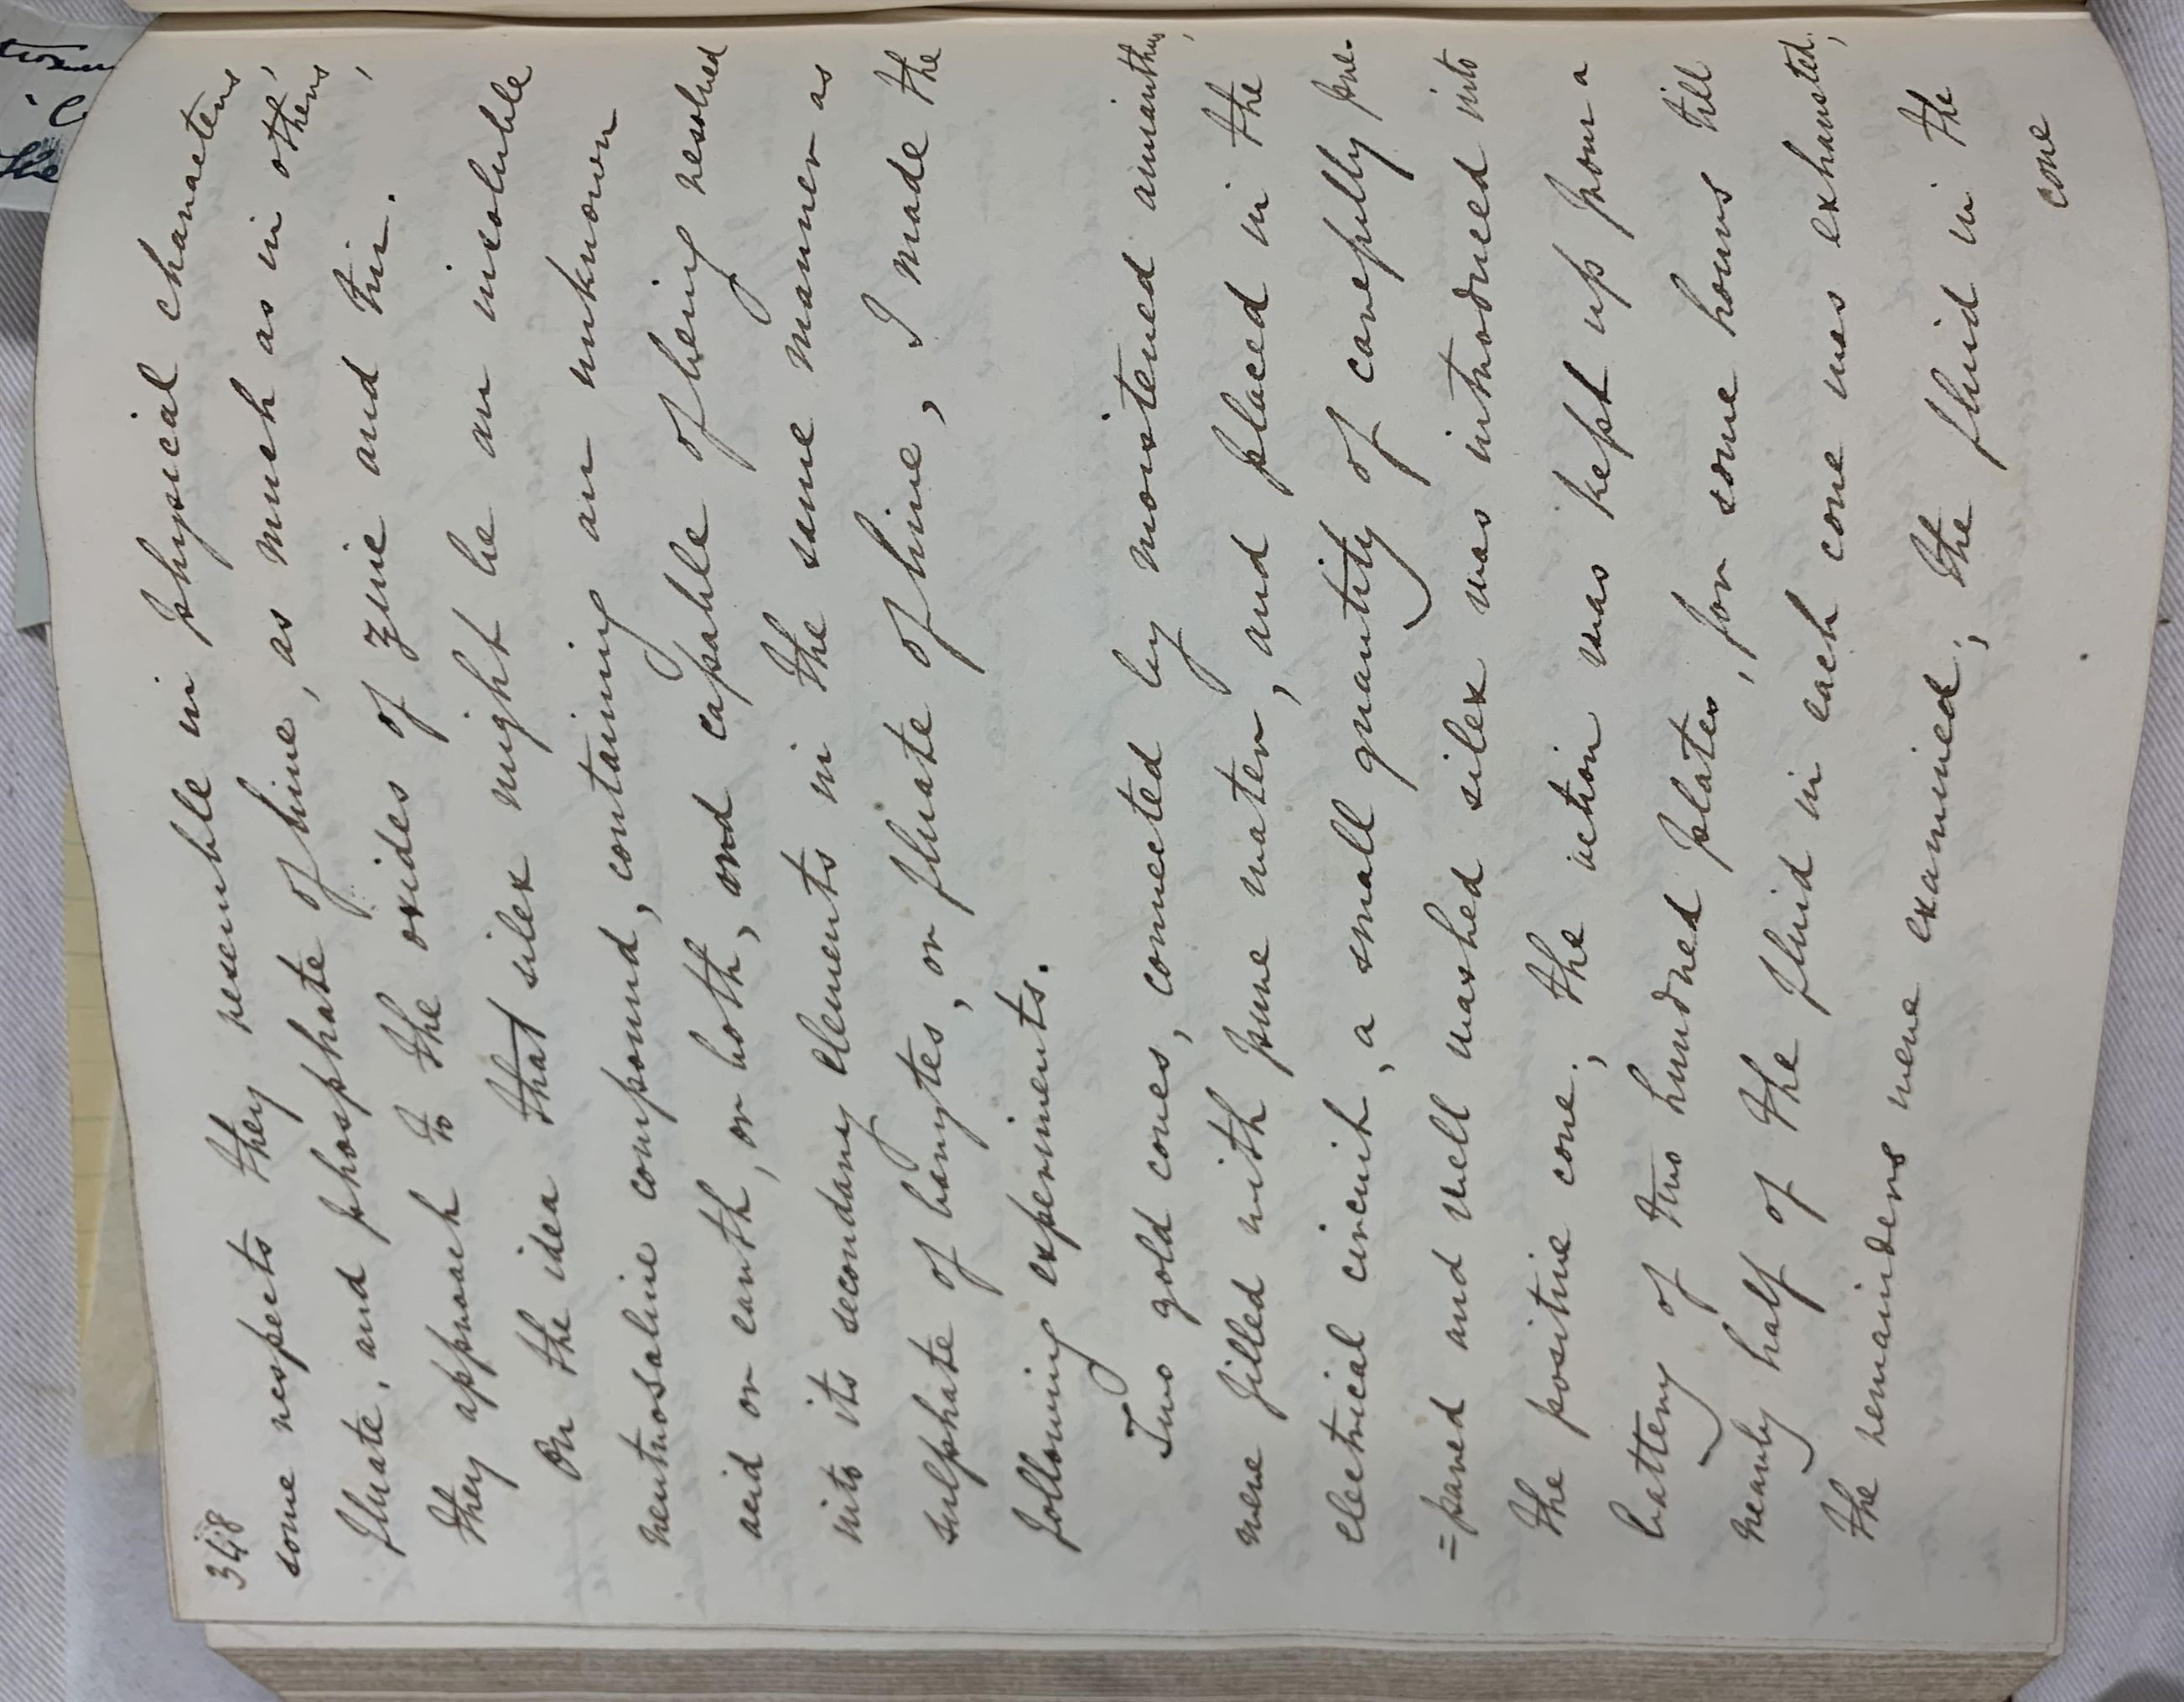 348
some respects they resemble in physical characters,
fluate, and phosphate of lime, as much as in others,
they approach to the oxides of zinc and tin.
On the idea that silex might be an insoluble
neutrosaline compound, containing an unknown
acid or earth, or both, and capable of being resolved
into its secondary elements in the same manner as
sulphate of barytes, or fluate of lime, I made the
following experiments.
Two gold cones, connected by moistened amianthus,
were filled with pure water, and placed in the
electrical circuit, a small quantity of carefully pre-
=pared and well washed silex was introduced into
the positive cone; the action was kept up from a
battery of two hundred plates, for some hours till
nearly half of the fluid in each cone was exhausted;
the remainders were examined; the fluid in the
cone